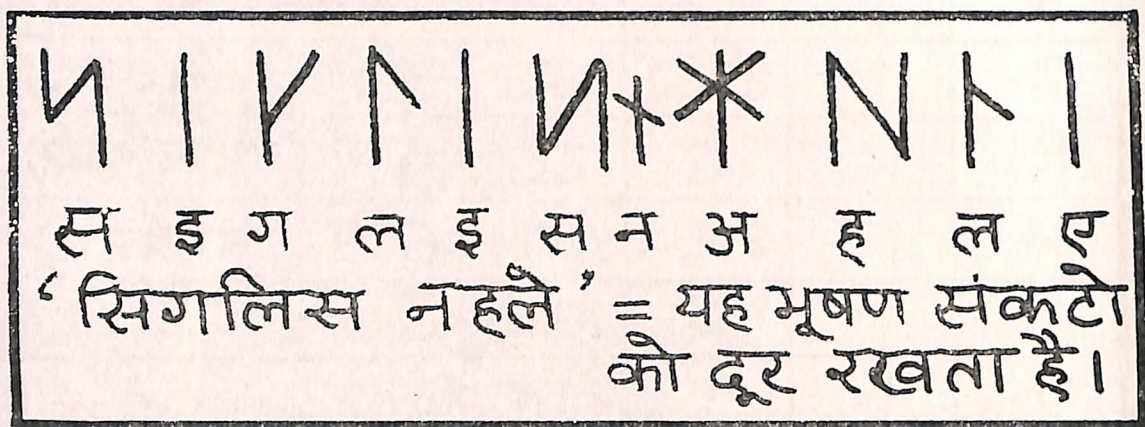 ᛋ ᛁ ᚴ ᛚ ᛁ ᛋ ᚾ ᛡ ᚺ ᛚ ᛁ
स इ ग ल इ स न अ ह ल ए
‘सिगलिस नहले’ = यह भूषण संकटो
को दूर रखता है।